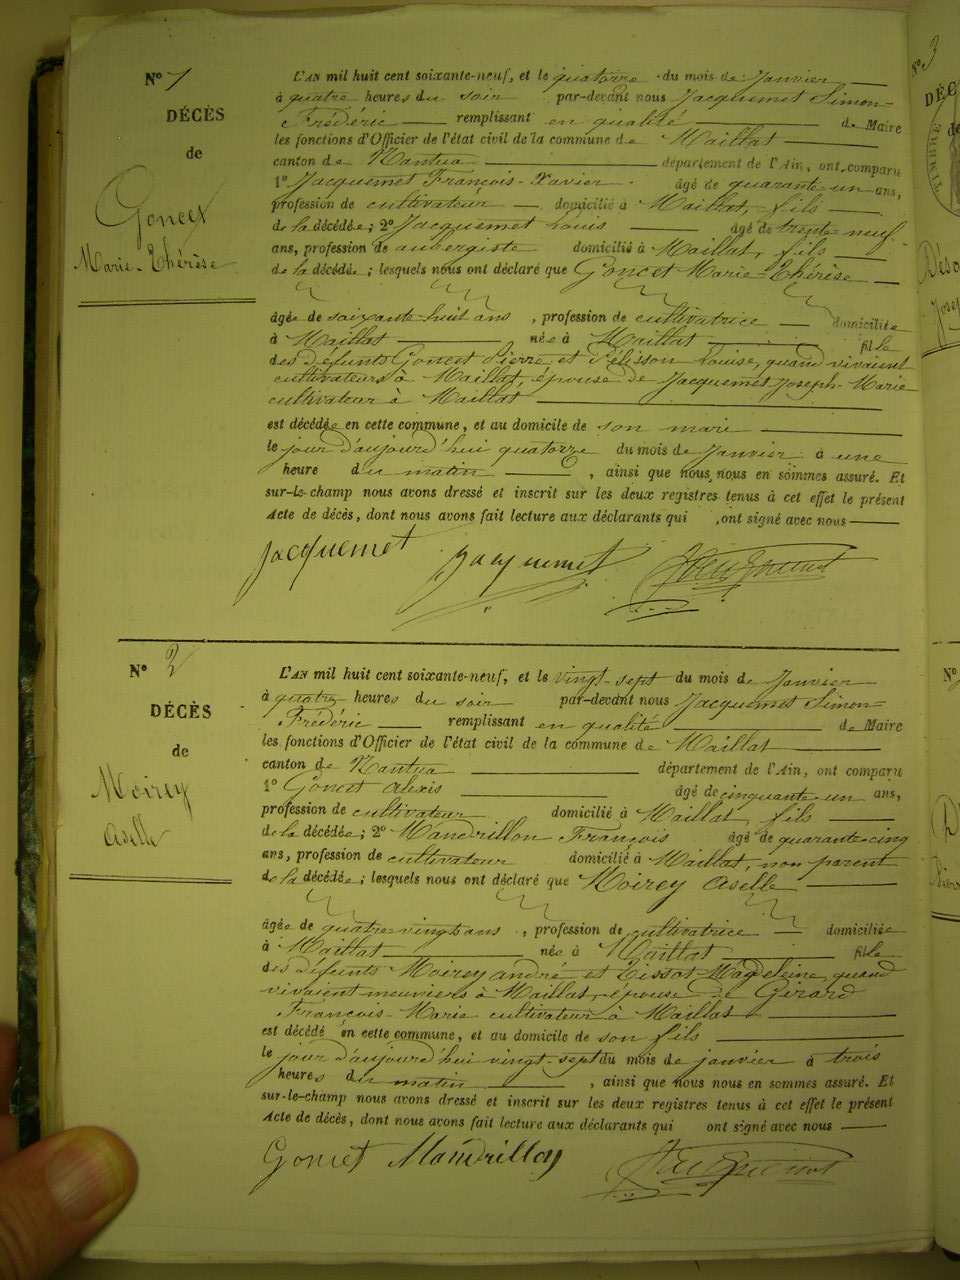 N° 1
DÉCÈS
de
Goncet
Marie-Thérèse
L'AN mil huit cent soixante-neuf, et le quatorze du mois de Janvier
à quatre heures du soir par-devant nous Jacquemet Simon-
Frédéric remplissant en qualité de Maire
les fonctions d'Officier de l'état civil de la commune de Maillat
canton de Nantua département de l'Ain, ont comparu
1° Jacquemet François-Xavier âgé de quarante-un ans,
profession de cultivateur domicilié à Maillat, fils
de la décédée; 2° Jacquemet Louis âgé de trente-neuf
ans, profession de aubergiste domicilié à Maillat, fils
de la décédée; lesquels nous ont déclaré que Goncet Marie-Thérèse
âgée de soixante-huit ans, profession de cultivatrice domiciliée
à Maillat née à Maillat fille
des défunts Goncet Pierre et Pélisson Louise, quand vivaient
cultivateurs à Maillat, épouse de Jacquemet Joseph-Marie
cultivateur à Maillat
est décédée en cette commune, et au domicile de son mari
le jour d'aujourd'hui quatorze du mois de Janvier à une
heure du matin, ainsi que nous nous en sommes assuré. Et
sur-le-champ nous avons dressé et inscrit sur les deux registres tenus à cet effet le présent
Acte de décès, dont nous avons fait lecture aux déclarants qui, ont signé avec nous
Jacquemet Jacquemet
N° 2
DÉCÈS
de
Moirey
Aselle
L'AN mil huit cent soixante-neuf, et le vingt-sept du mois de Janvier
à quatre heures du soir par-devant nous Jacquemet Simon-
Frédéric remplissant en qualité de Maire
les fonctions d'Officier de l'état civil de la commune de Maillat
canton de Nantua département de l'Ain, ont comparu
1° Goncet Alexis âgé de cinquante-un ans,
profession de cultivateur domicilié à Maillat, fils
de la décédée; 2° Mandrillon François âgé de quarante-cinq
ans, profession de cultivateur domicilié à Maillat, non parent
de la décédée; lesquels nous ont déclaré que Moirey Aselle
âgée de quatre-vingts ans, profession de cultivatrice domiciliée
à Maillat née à Maillat fille
des défunts Moirey André et Tissot Magdeleine, quand
vivaient meuniers à Maillat, épouse de Girard
François-Marie cultivateur à Maillat
est décédé en cette commune, et au domicile de son fils
le jour d'aujourd'hui vingt-sept du mois de janvier à trois
heures du matin, ainsi que nous nous en sommes assuré. Et
sur-le-champ nous avons dressé et inscrit sur les deux registres tenus à cet effet le présent
Acte de décès, dont nous avons fait lecture aux déclarants qui ont signé avec nous
Goncet Mandrillon
N° 3